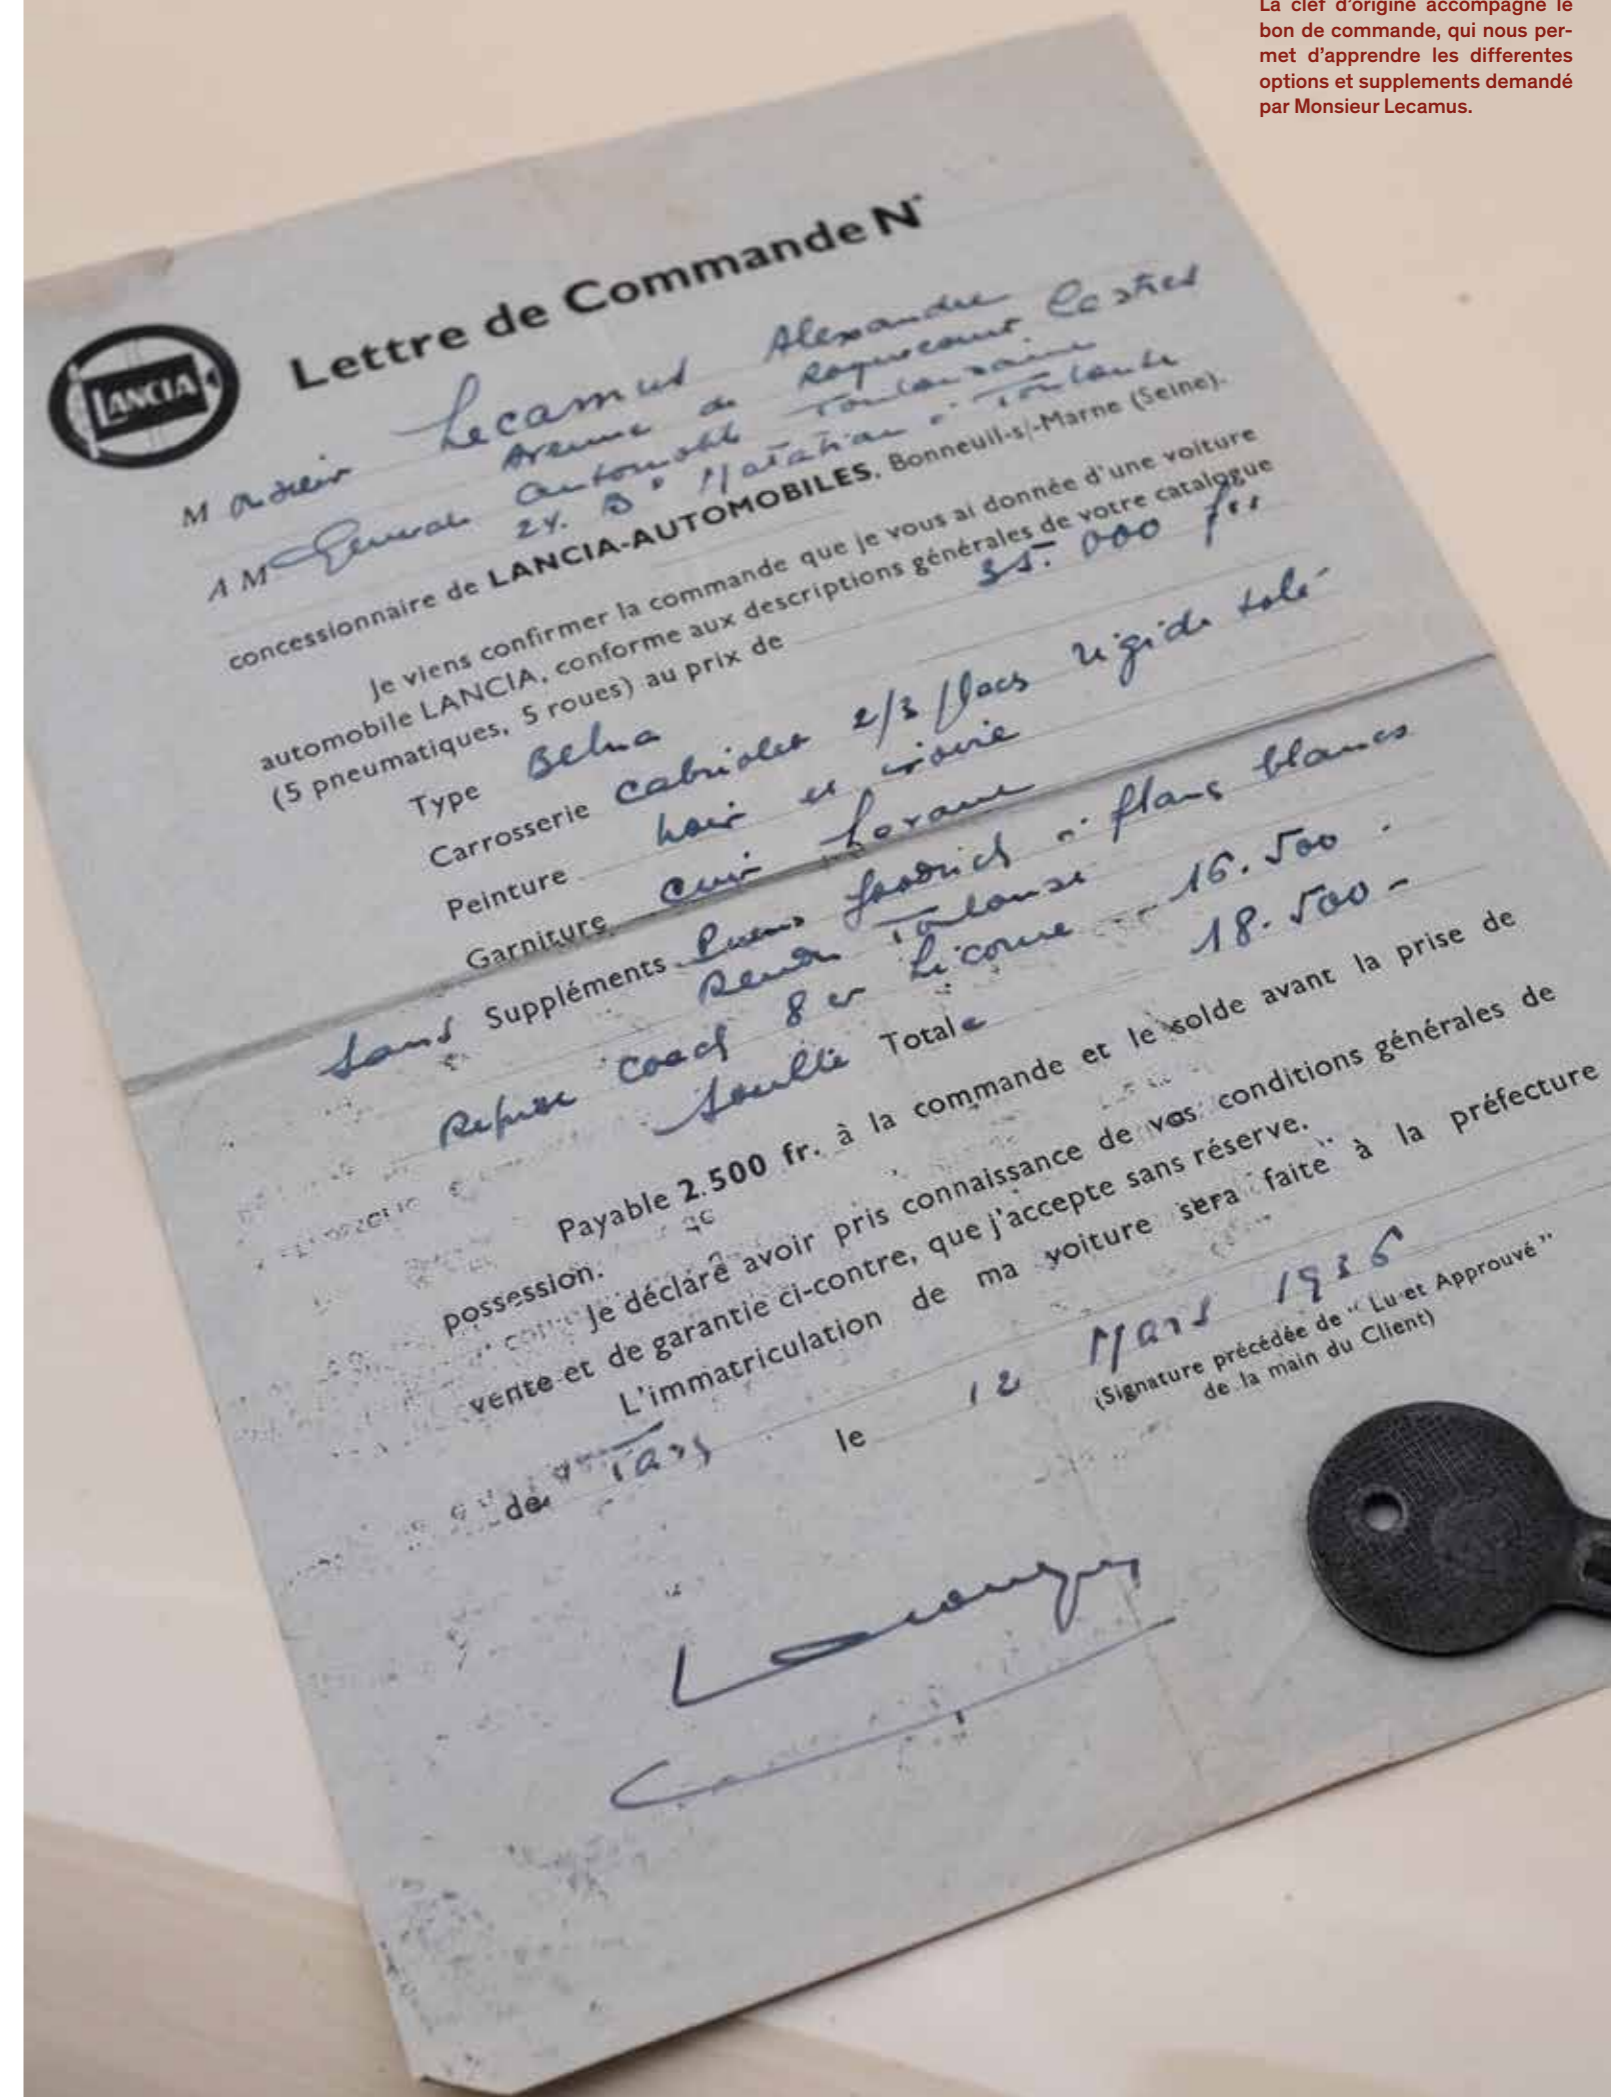 La clef d'origine accompagne le
bon de commande, qui nous per-
met d'apprendre les differentes
options et supplements demandé
par Monsieur Lecamus.
LANCIA
Lettre de Commande N°
Monsieur Lecamus Alexandre
Avenue de Roquecourt Castres
A M General Automobile Toulousaine
24. Bd Matabiau à Toulouse
concessionnaire de LANCIA-AUTOMOBILES, Bonneuil-s/-Marne (Seine).
Je viens confirmer la commande que je vous ai donnée d'une voiture
automobile LANCIA, conforme aux descriptions générales de votre catalogue
(5 pneumatiques, 5 roues) au prix de 35.000 frs
Type Belna
Carrosserie Cabriolet 2/3 places rigide tolé
Peinture noir et ivoire
Garniture cuir
Sans Suppléments Pneus Goodrich à flancs blancs
Rendu Toulouse
Reprise coach 8 cv Licorne 16.500
Soulte Totale 18.500 -
Payable 2.500 fr. à la commande et le solde avant la prise de
possession.
Je déclare avoir pris connaissance de vos conditions générales de
vente et de garantie ci-contre, que j'accepte sans réserve.
L'immatriculation de ma voiture sera faite à la préfecture
de Tarn le 12 Mars 1936
(Signature précédée de "Lu et Approuvé"
de la main du Client)